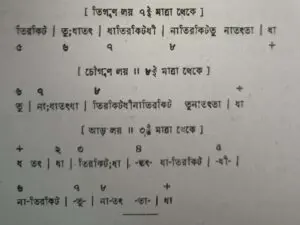 [ তিগুণ লয় ৭ ১/২ মাত্রা থেকে ]
তিরকিট | তু;ধাতৎ | ধাতিরকিটধী | নাতিরকিটতু নাতৎতা | ধা
৫ ৬ ৭ ৮ +
[ চৌগুণ লয় ॥ ৮ মাত্রা থেকে ]
৬ ৭ ৮ +
তু | না;ধাতৎধা | তিরকিটধীনাতিরকিট তুনাতৎতা | ধা
[ আড় লয় ॥ ৩ মাত্রা থেকে ]
+ ২ ৩ ৪ ৫
ধ তৎ | ধা | তিরকিট;ধা | -তৎ- ধা-তিরকিট | -ধী- |
৬ ৭ ৮ +
না-তিরকিট | -তু- | না-তৎ -তা- | ধা